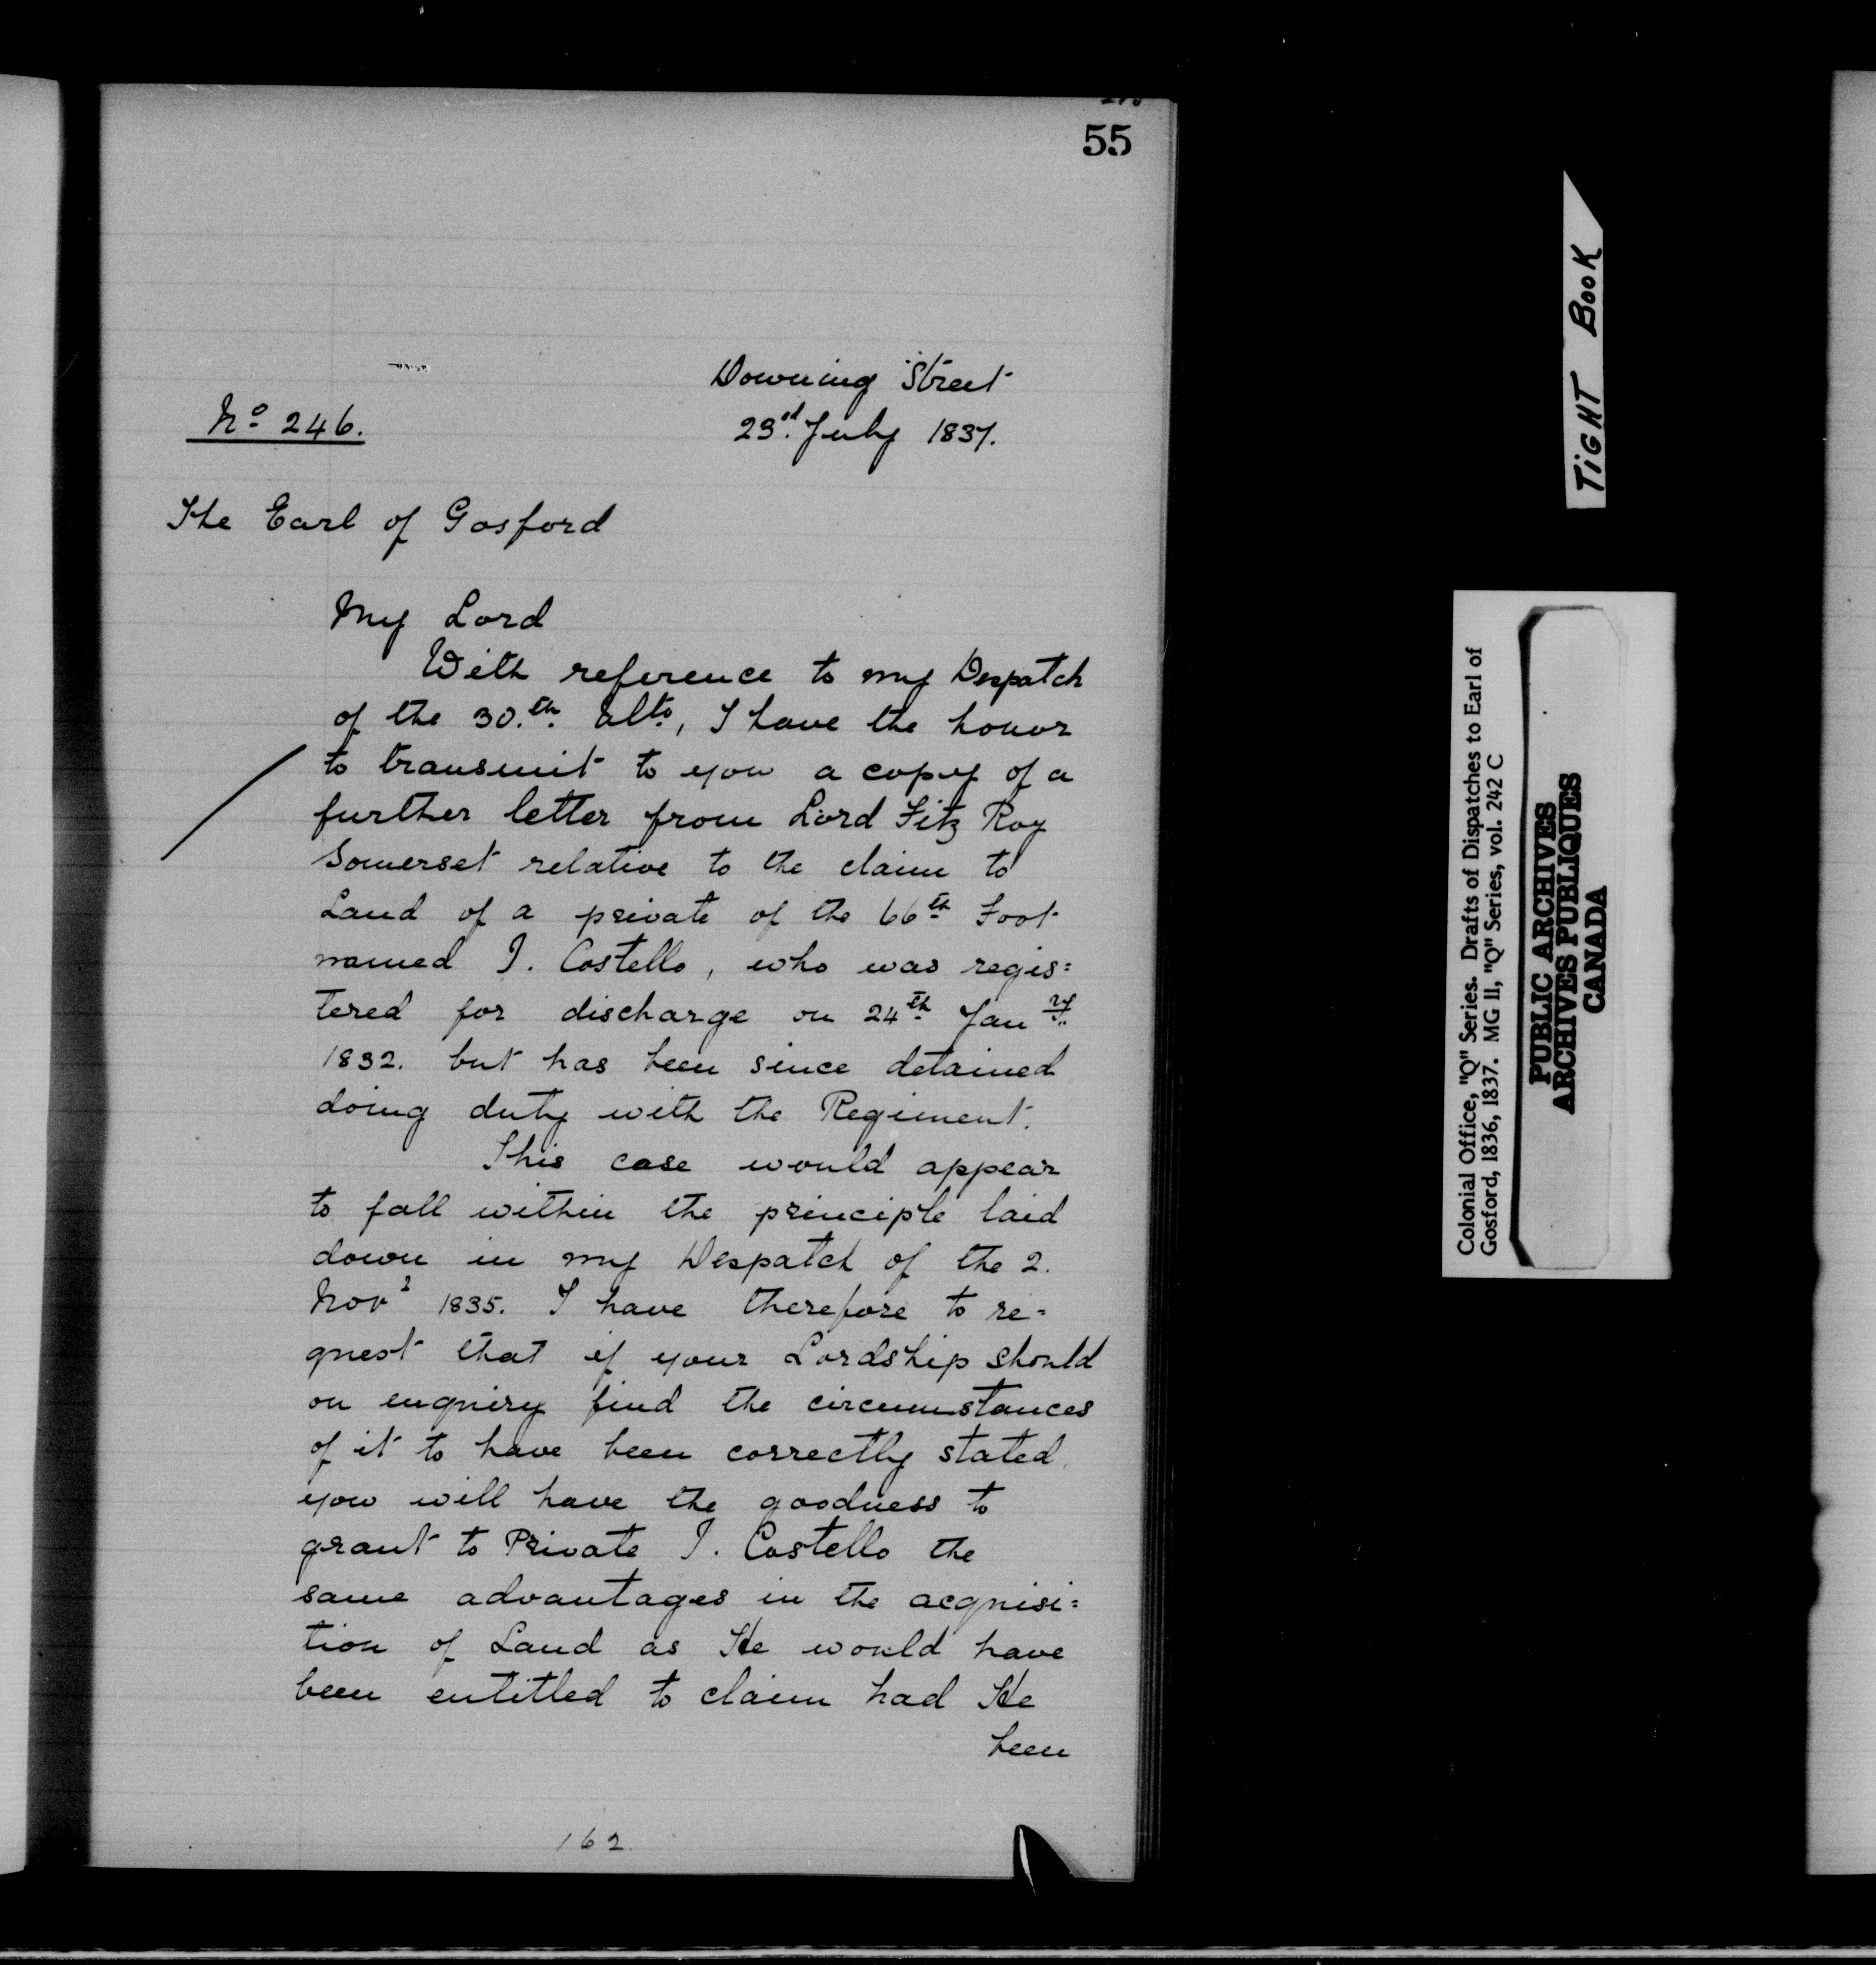 55
Downing Street
No 246.
23rd July 1837.
The Earl of Gosford
My Lord
With reference to my Despatch
of the 30.th Ulto, I have the honor
to transmit to you a copy of a
further letter from Lord Fitz Roy
Somerset relative to the claim to
Land of a private of the 66th Foot
named J. Costello, who was regis=
tered for discharge on 24th Janry
1832. but has been since detained
doing duty with the Regiment.
This case would appear
to fall within the principle laid
down in my Despatch of the 2.
Novr 1835. I have therefore to re=
quest that if your Lordship should
on enquiry find the circumstances
of it to have been correctly stated,
you will have the goodness to
grant to Private J. Costello the
same advantages in the acquisi=
tion of Land as He would have
been entitled to claim had He
been
162
TIGHT BOOK
Colonial Office, "Q" Series. Drafts of Dispatches to Earl of
Gosford, 1836, 1837. MG 11, "Q" Series, vol. 242 C
PUBLIC ARCHIVES
ARCHIVES PUBLIQUES
CANADA